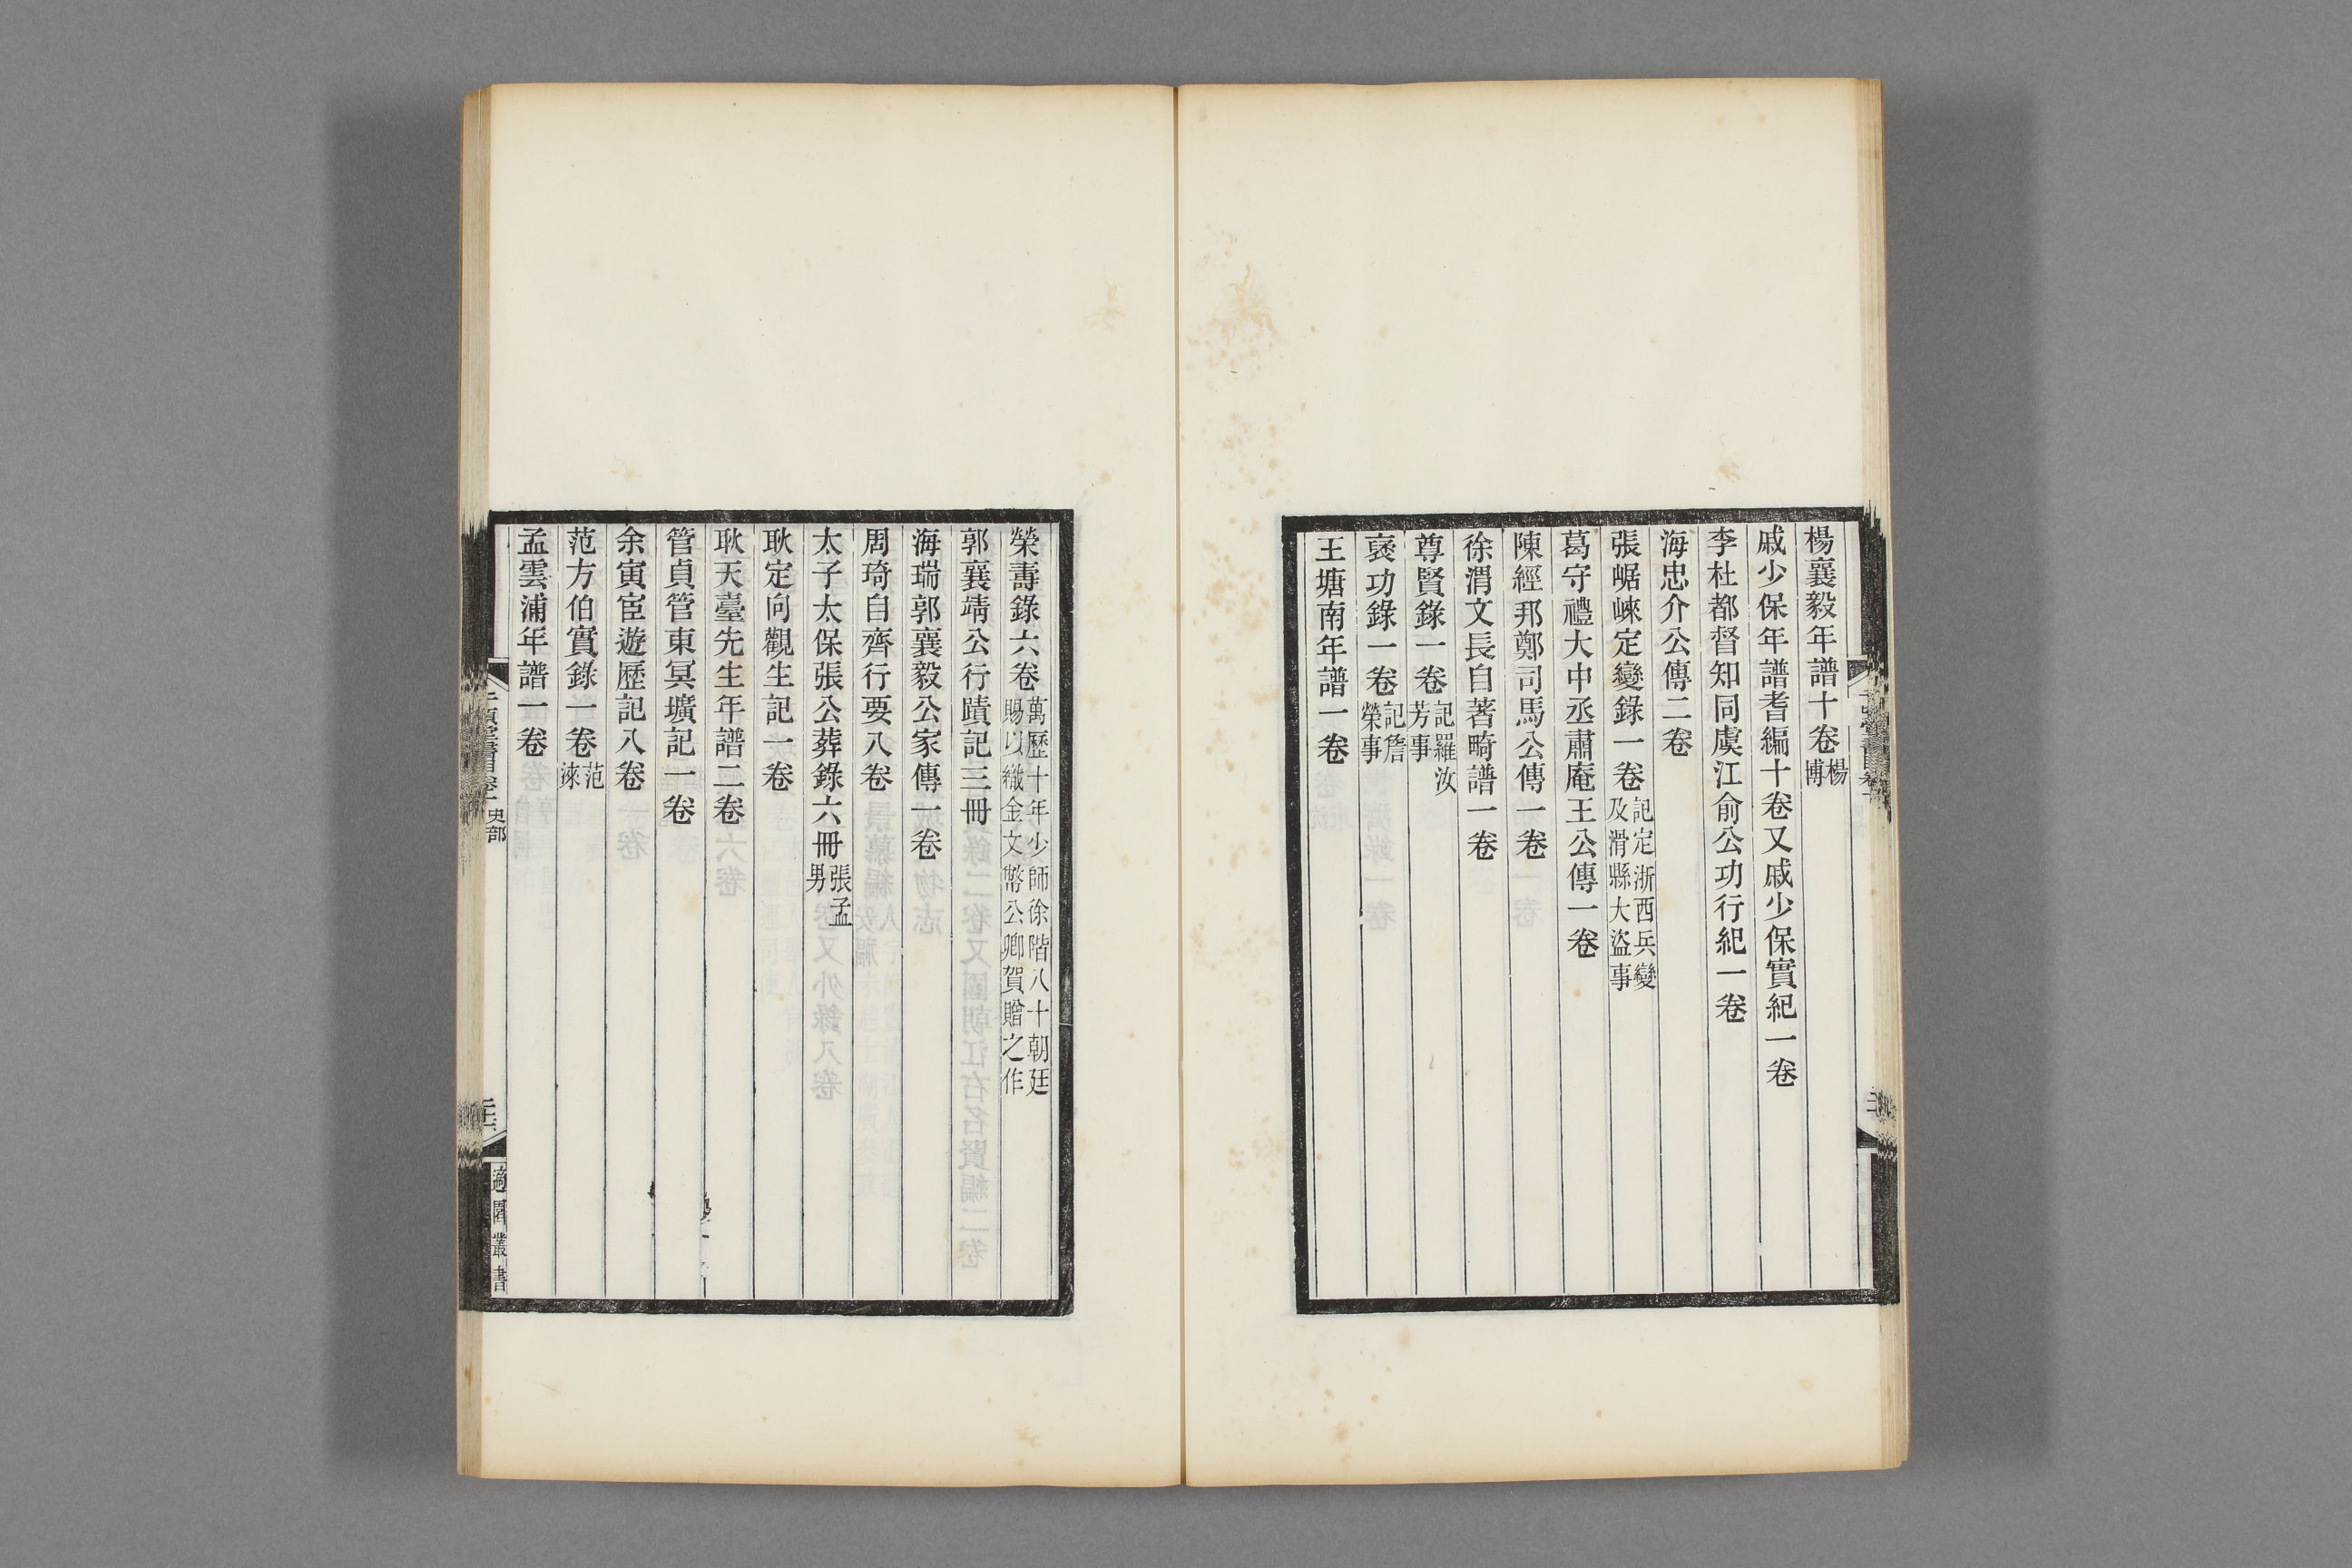 楊襄毅年譜十卷楊博
戚少保年譜耆編十卷又戚少保實紀一卷
李杜都督知同虞江俞公功行紀一卷
海忠介公傳二卷
張崌崍定變錄一卷記定浙西兵變及滑縣大盜事
葛守禮大中丞肅庵王公傳一卷
陳經邦鄭司馬公傳一卷
徐渭文長自著畸譜一卷
尊賢錄一卷記羅汝芳事
褒功錄一卷記詹榮事
王塘南年譜一卷
榮壽錄六卷萬歷十年少師徐階八十朝廷賜以織金文幣公卿賀贈之作
郭襄靖公行蹟記三冊
海瑞郭襄毅公家傳一卷
周琦自齊行要八卷
太子太保張公葬錄六冊張孟男
耿定向觀生記一卷
耿天臺先生年譜二卷
管貞管東冥壙記一卷
余寅宦遊歷記八卷
范方伯實錄一卷范淶
孟雲浦年譜一卷
史部
適園叢書